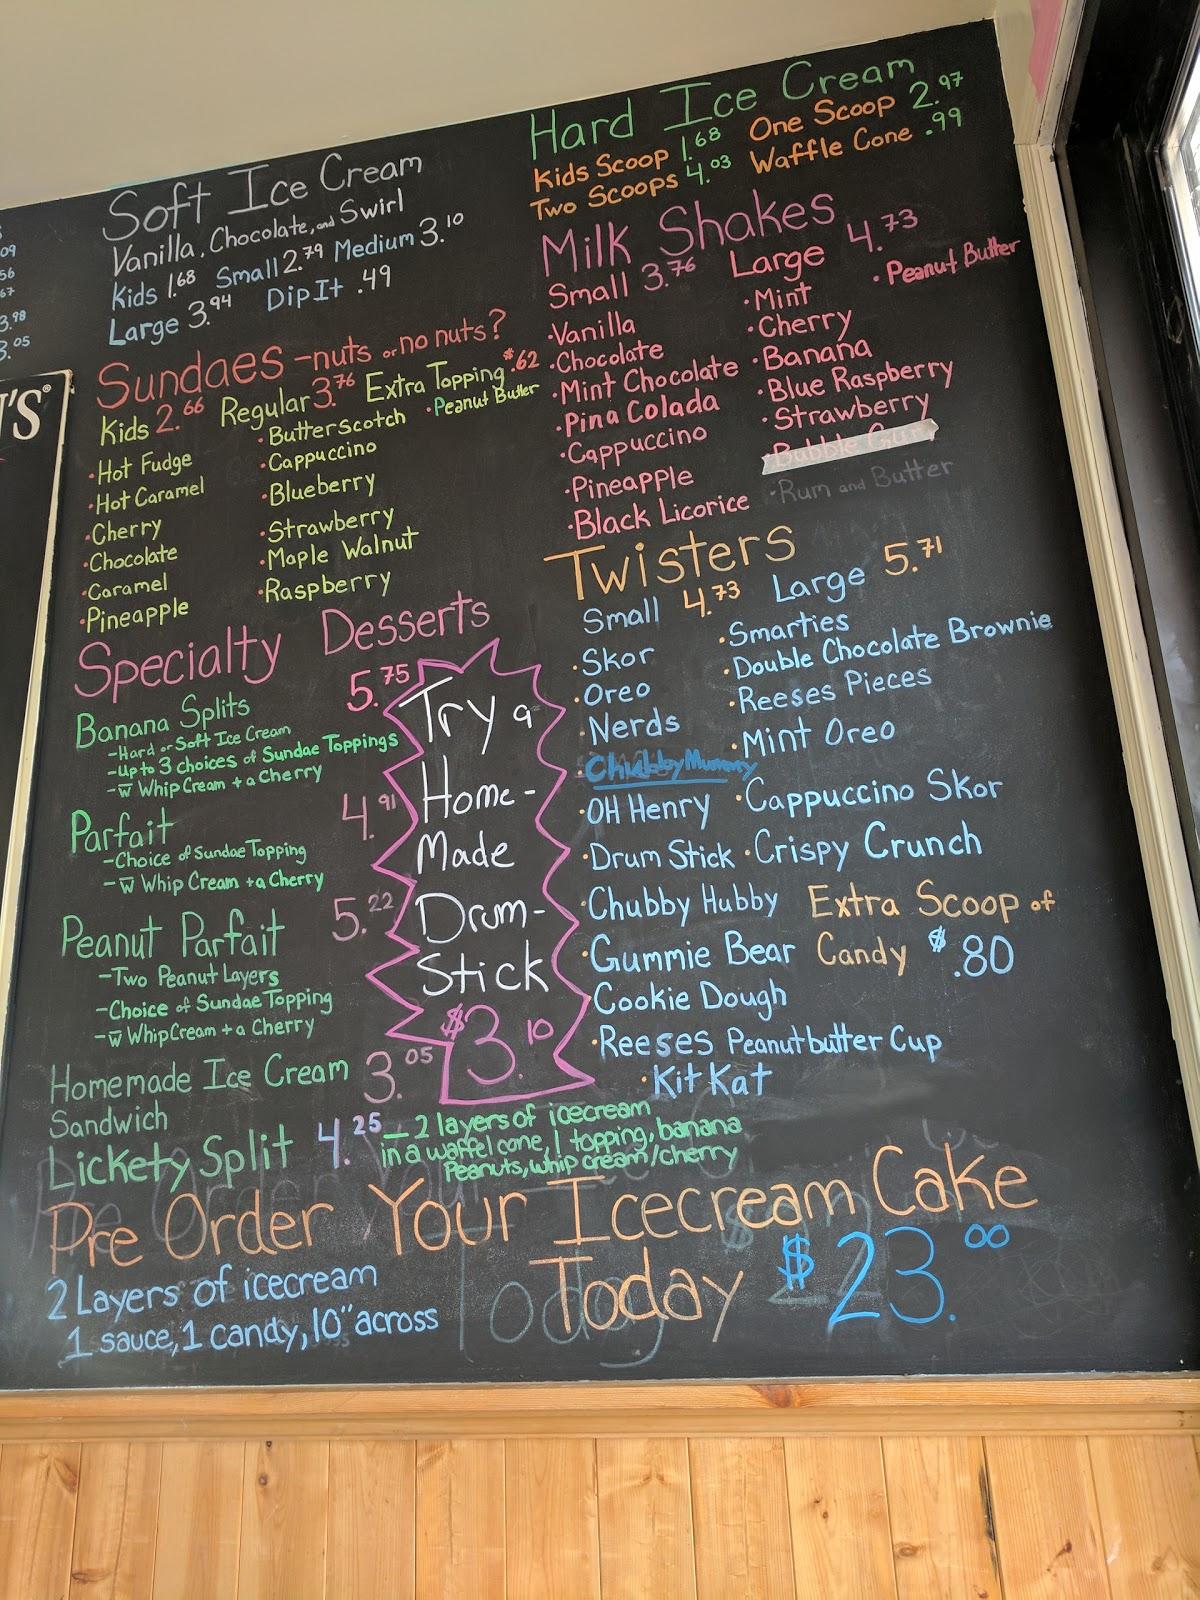 09
56
67
3.98
3.05
N'S®
Soft Ice Cream
Vanilla, Chocolate, and Swirl
Kids 1.68 Small 2.79 Medium 3.10
Large 3.94 Dip It .49
Sundaes - nuts or no nuts?
Kids 2.66 Regular 3.76 Extra Topping $.62
·Hot Fudge
·Hot Caramel
·Cherry
·Chocolate
·Caramel
·Pineapple
·Butterscotch
·Cappuccino
·Blueberry
·Strawberry
·Maple Walnut
·Raspberry
·Peanut Butter
Specialty Desserts
Banana Splits 5.75
-Hard or Soft Ice Cream
-up to 3 choices of Sundae Toppings
-w̅ Whip Cream + a Cherry
Parfait 4.91
-Choice of Sundae Topping
-w̅ Whip Cream + a Cherry
Peanut Parfait 5.22
-Two Peanut Layers
-Choice of Sundae Topping
-w̅ Whip Cream + a Cherry
Homemade Ice Cream 3.05
Sandwich
Lickety Split 4.25 – 2 layers of icecream
in a waffel cone, 1 topping, banana
Peanuts, whip cream/cherry
Try a
Home-
Made
Drum-
Stick
$3.10
Hard Ice Cream
Kids Scoop 1.68 One Scoop 2.97
Two Scoops 4.03 Waffle Cone .99
Milk Shakes
Small 3.76 Large 4.73
·Vanilla
·Chocolate
·Mint Chocolate
·Pina Colada
·Cappuccino
·Pineapple
·Black Licorice
·Mint
·Cherry
·Banana
·Blue Raspberry
·Strawberry
·Bubble Gum
·Rum and Butter
·Peanut Butter
Twisters
Small 4.73 Large 5.71
·Skor
·Oreo
·Nerds
·Chubby Mummy
·OH Henry
·Drum Stick
·Chubby Hubby
·Gummie Bear
·Cookie Dough
·Reeses Peanutbutter Cup
·Kit Kat
·Smarties
·Double Chocolate Brownie
·Reeses Pieces
·Mint Oreo
·Cappuccino Skor
·Crispy Crunch
Extra Scoop of
Candy $.80
Pre Order Your Icecream Cake
Today $23.00
2 Layers of icecream
1 sauce, 1 candy, 10" across